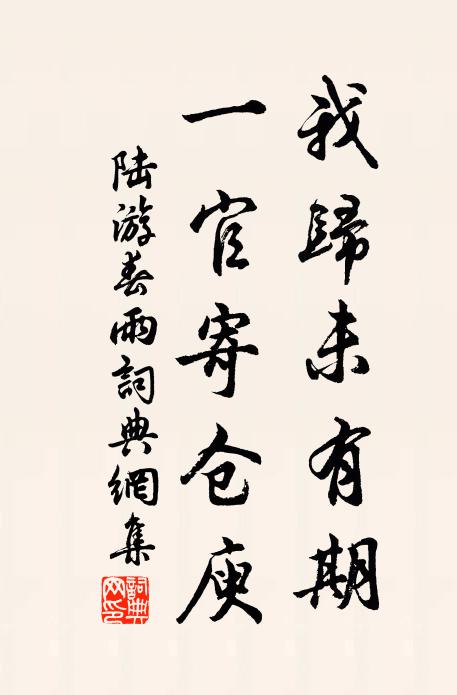 我歸未有期
一官寄仓庾
陆游春雨詞典網集
詞典網印